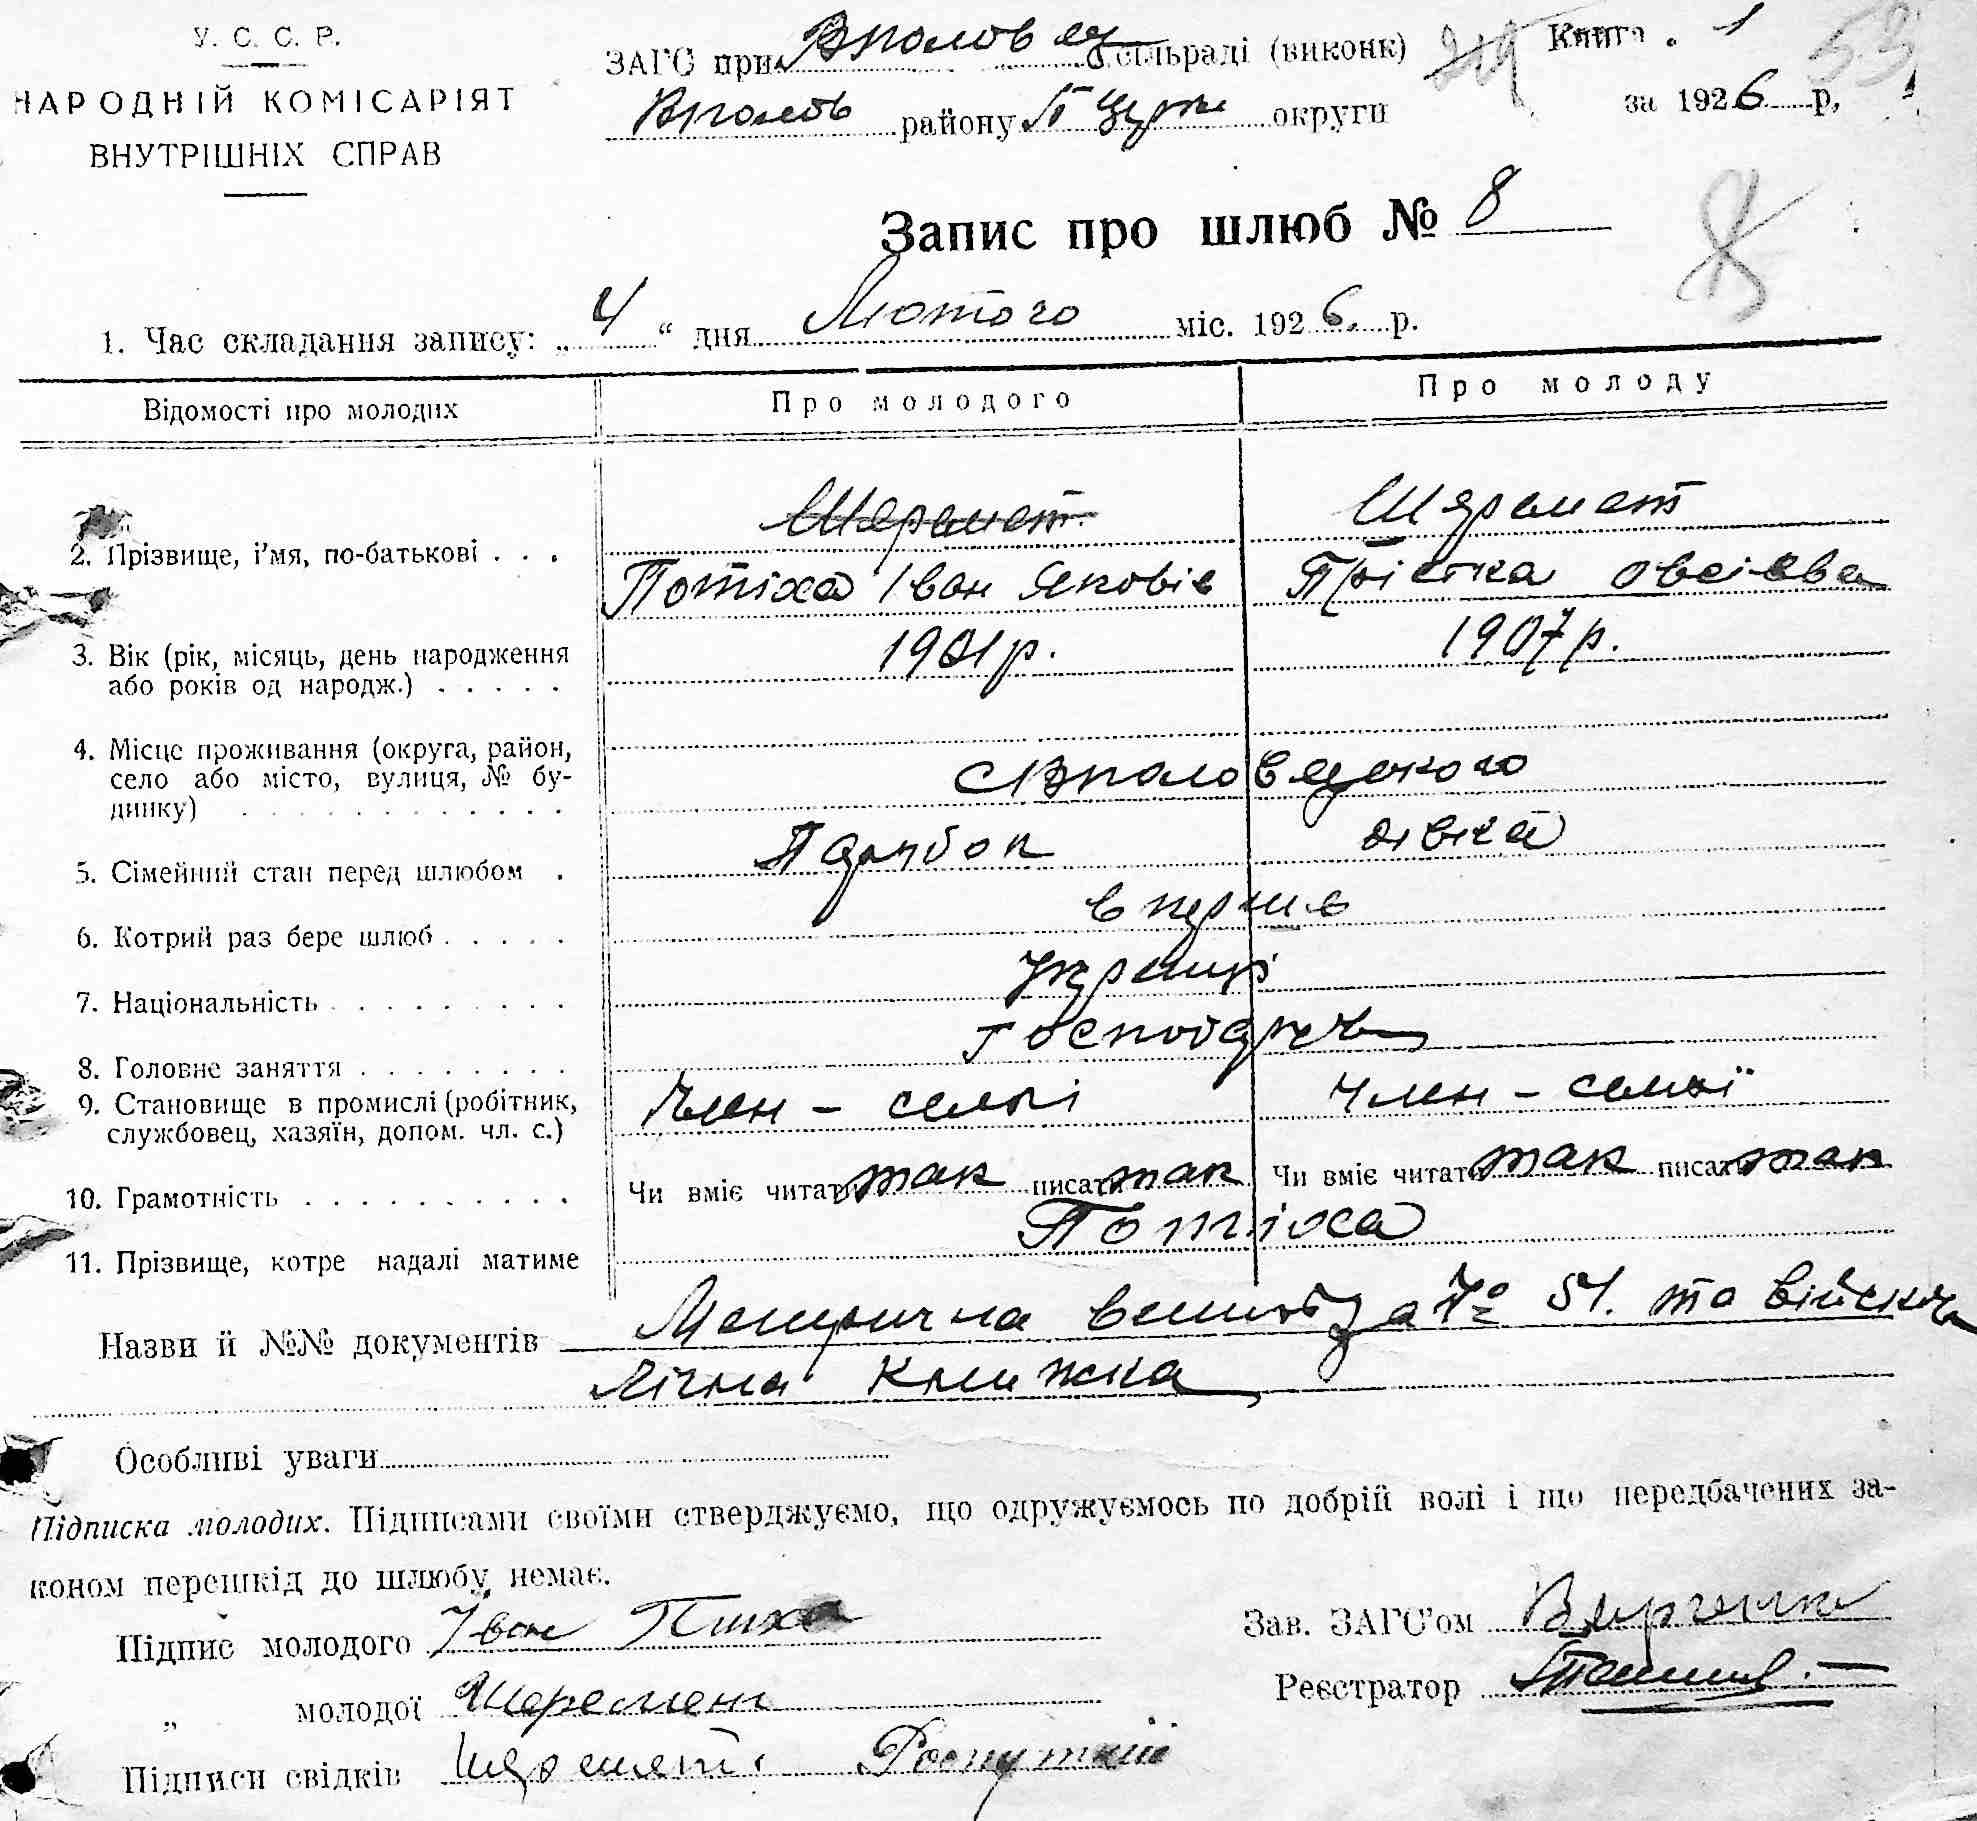 У. С. С. Р.
НАРОДНІЙ КОМІСАРІЯТ
ВНУТРІШНІХ СПРАВ
ЗАГС при Вполовец сільраді (виконк)
Книга 1
53
Вполов району округи
за 1926 р.
Запис про шлюб № 8
8
1. Час складання запису: „ 4 “ дня Лютого міс. 1926. р.
Відомості про молодих Про молодого Про молоду
Шеремет Шеремет
2. Прізвище, ім'я, по-батькові . . . Потіха Іван Яковів Прістка Овсієва
3. Вік (рік, місяць, день народження 1901р. 1907р.
або років од народж.) . . . . .
4. Місце проживання (округа, район,
село або місто, вулиця, № бу- с Вполовецького
динку) . . . . . . . . . . . .
5. Сімейний стан перед шлюбом . Парубок дівка
6. Котрий раз бере шлюб . . . . . вперше
7. Національність . . . . . . . . . Українці
8. Головне заняття . . . . . . . . Господарч
9. Становище в промислі (робітник, Член - семьі Член - семьї
службовец, хазяїн, допом. чл. с.)
10. Грамотність . . . . . . . . . . Чи вміє читати так писати так Чи вміє читати так писати так
11. Прізвище, котре надалі матиме Потіха
Назви й №№ документів Метрична за № 54. та військ
книжка
Особливі уваги
Підписка молодих. Підписами своїми стверджуємо, що одружуємось по добрій волі і що передбачених за-
коном перешкід до шлюбу немає.
Підпис молодого Іван Потіха
Зав. ЗАГС'ом
„ молодої Шеремет
Реєстратор
Підписи свідків Шеремет Роспутній